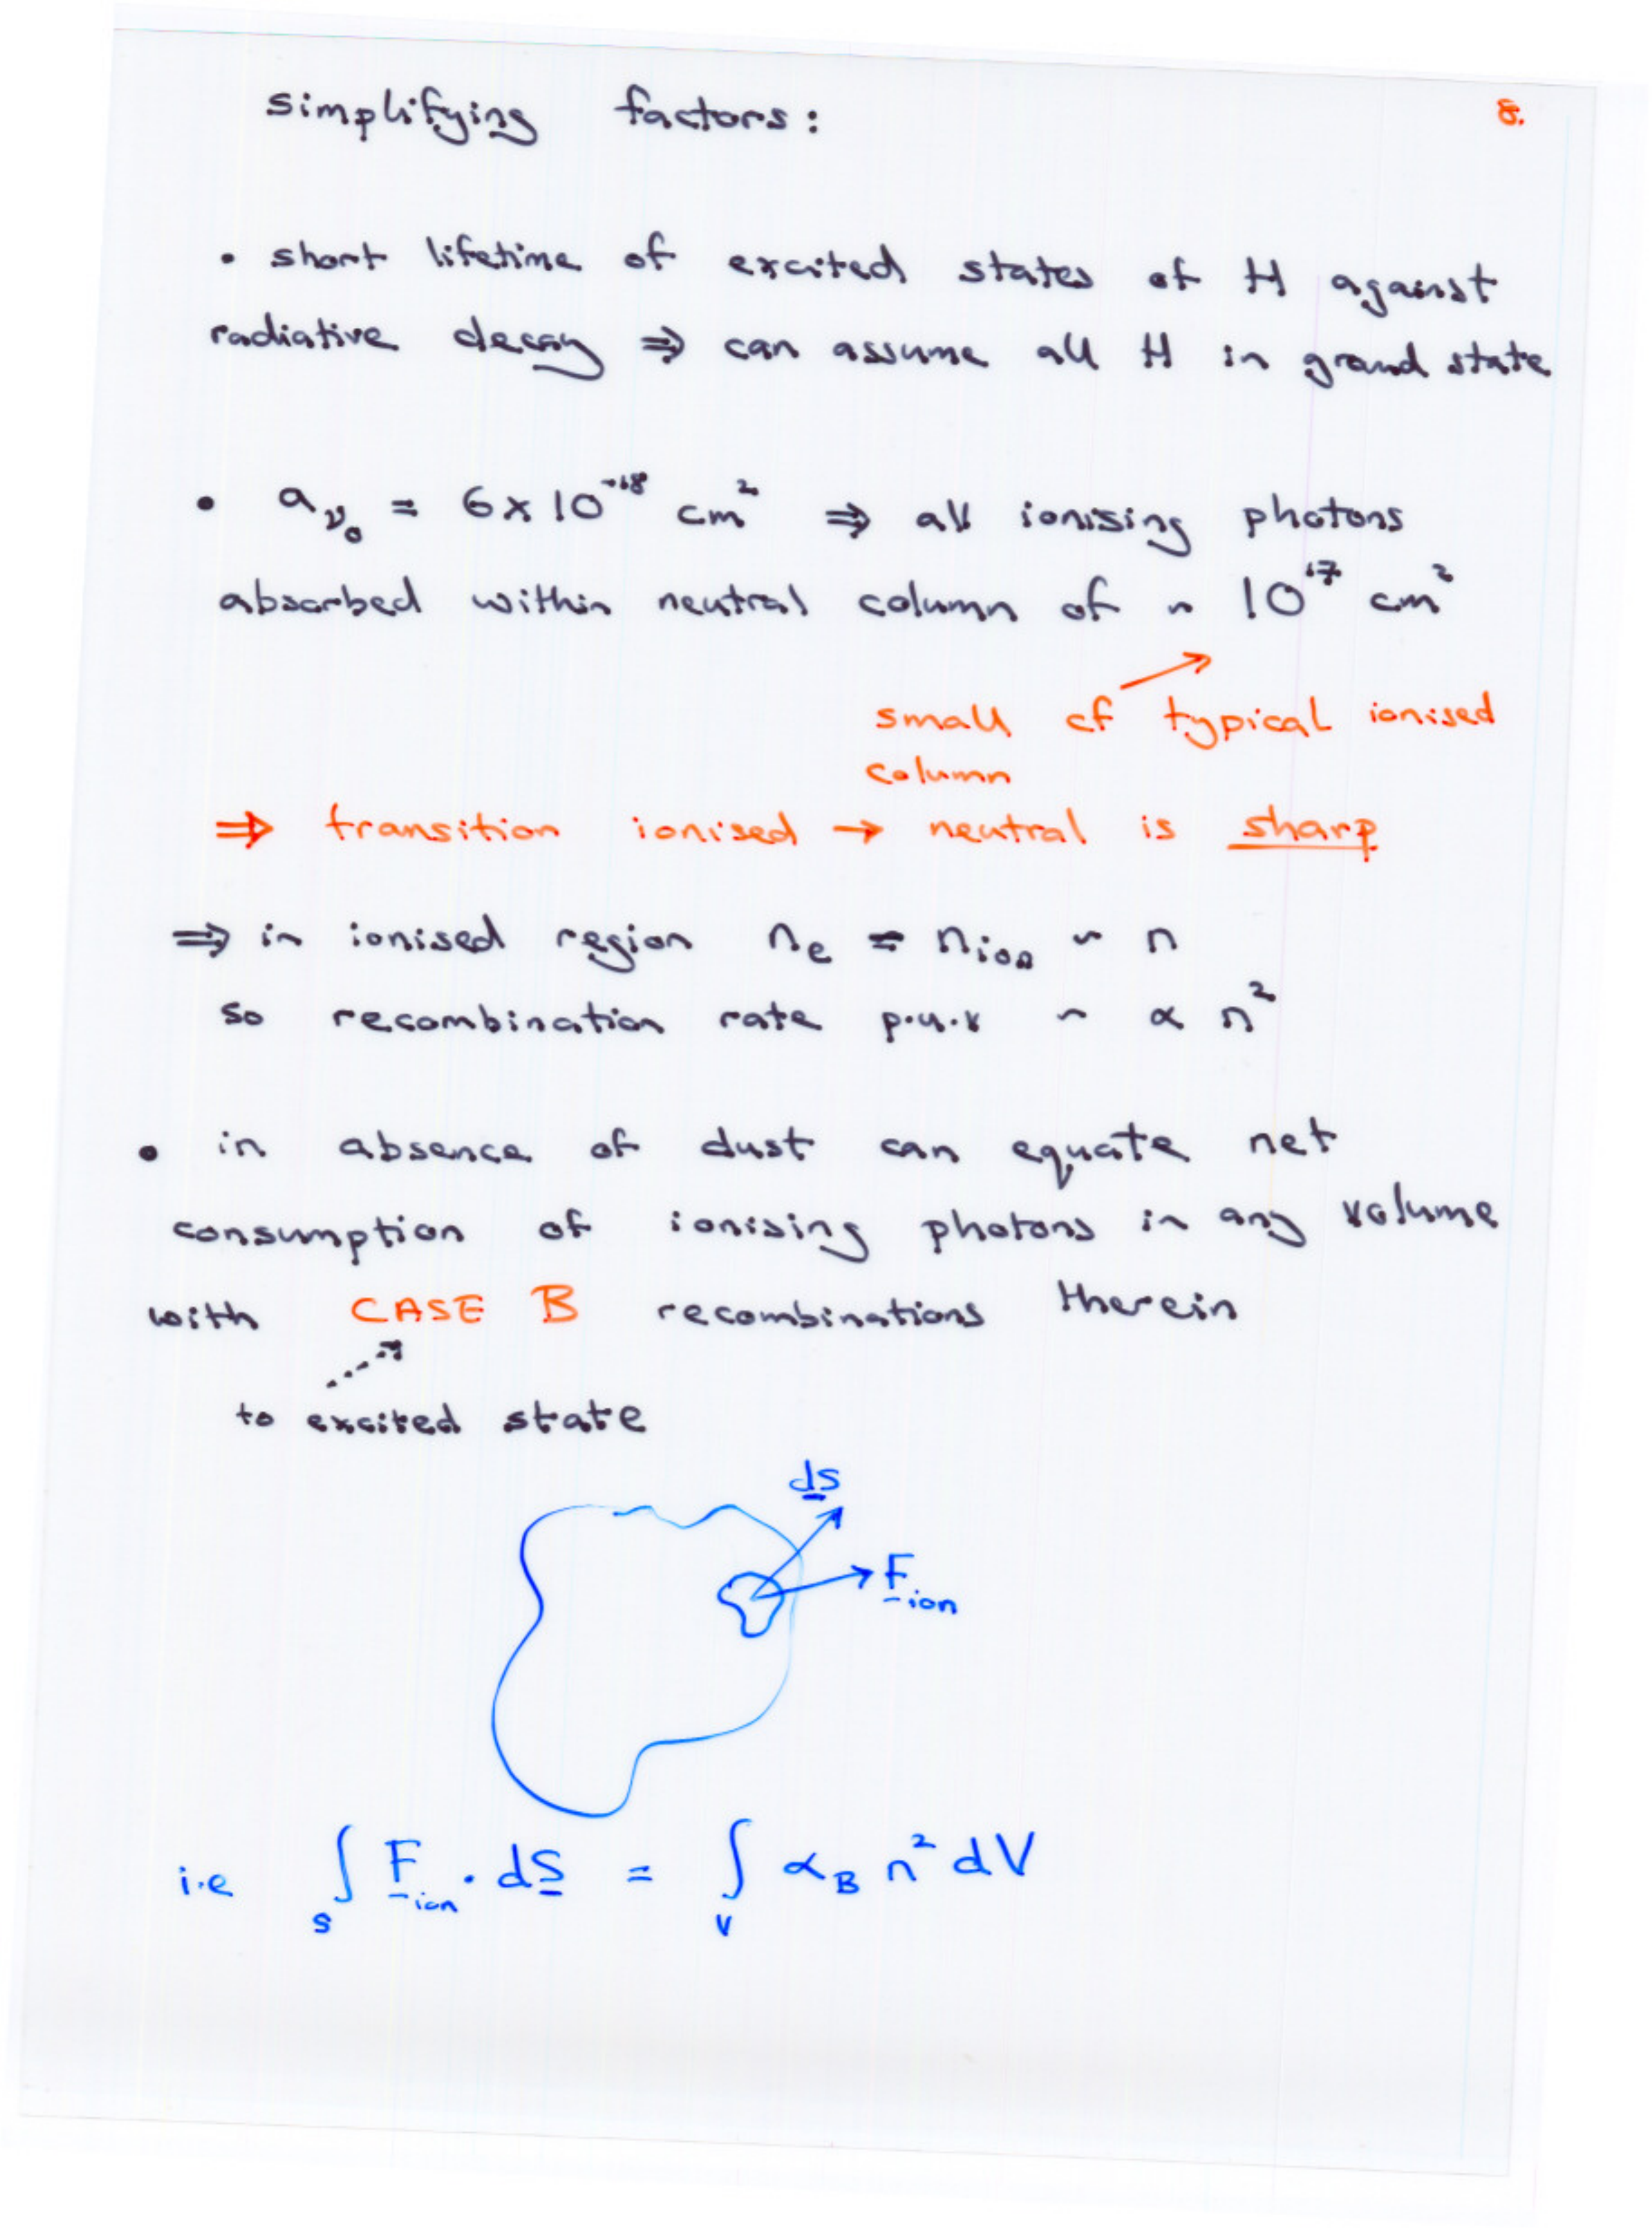 simplifying factors:
8.
• short lifetime of excited states of H against
radiative decay ⇒ can assume all H in ground state
• a_ν₀ = 6 x 10⁻¹⁸ cm² ⇒ all ionising photons
absorbed within neutral column of ~ 10¹⁷ cm²
small cf typical ionised
column
⇒ transition ionised → neutral is sharp
⇒ in ionised region nₑ = n_ion ~ n
so recombination rate p.u.v ~ α n²
• in absence of dust can equate net
consumption of ionising photons in any volume
with CASE B recombinations therein
to excited state
dS
F_ion
i.e ∫_S F_ion . dS = ∫_V α_B n² dV